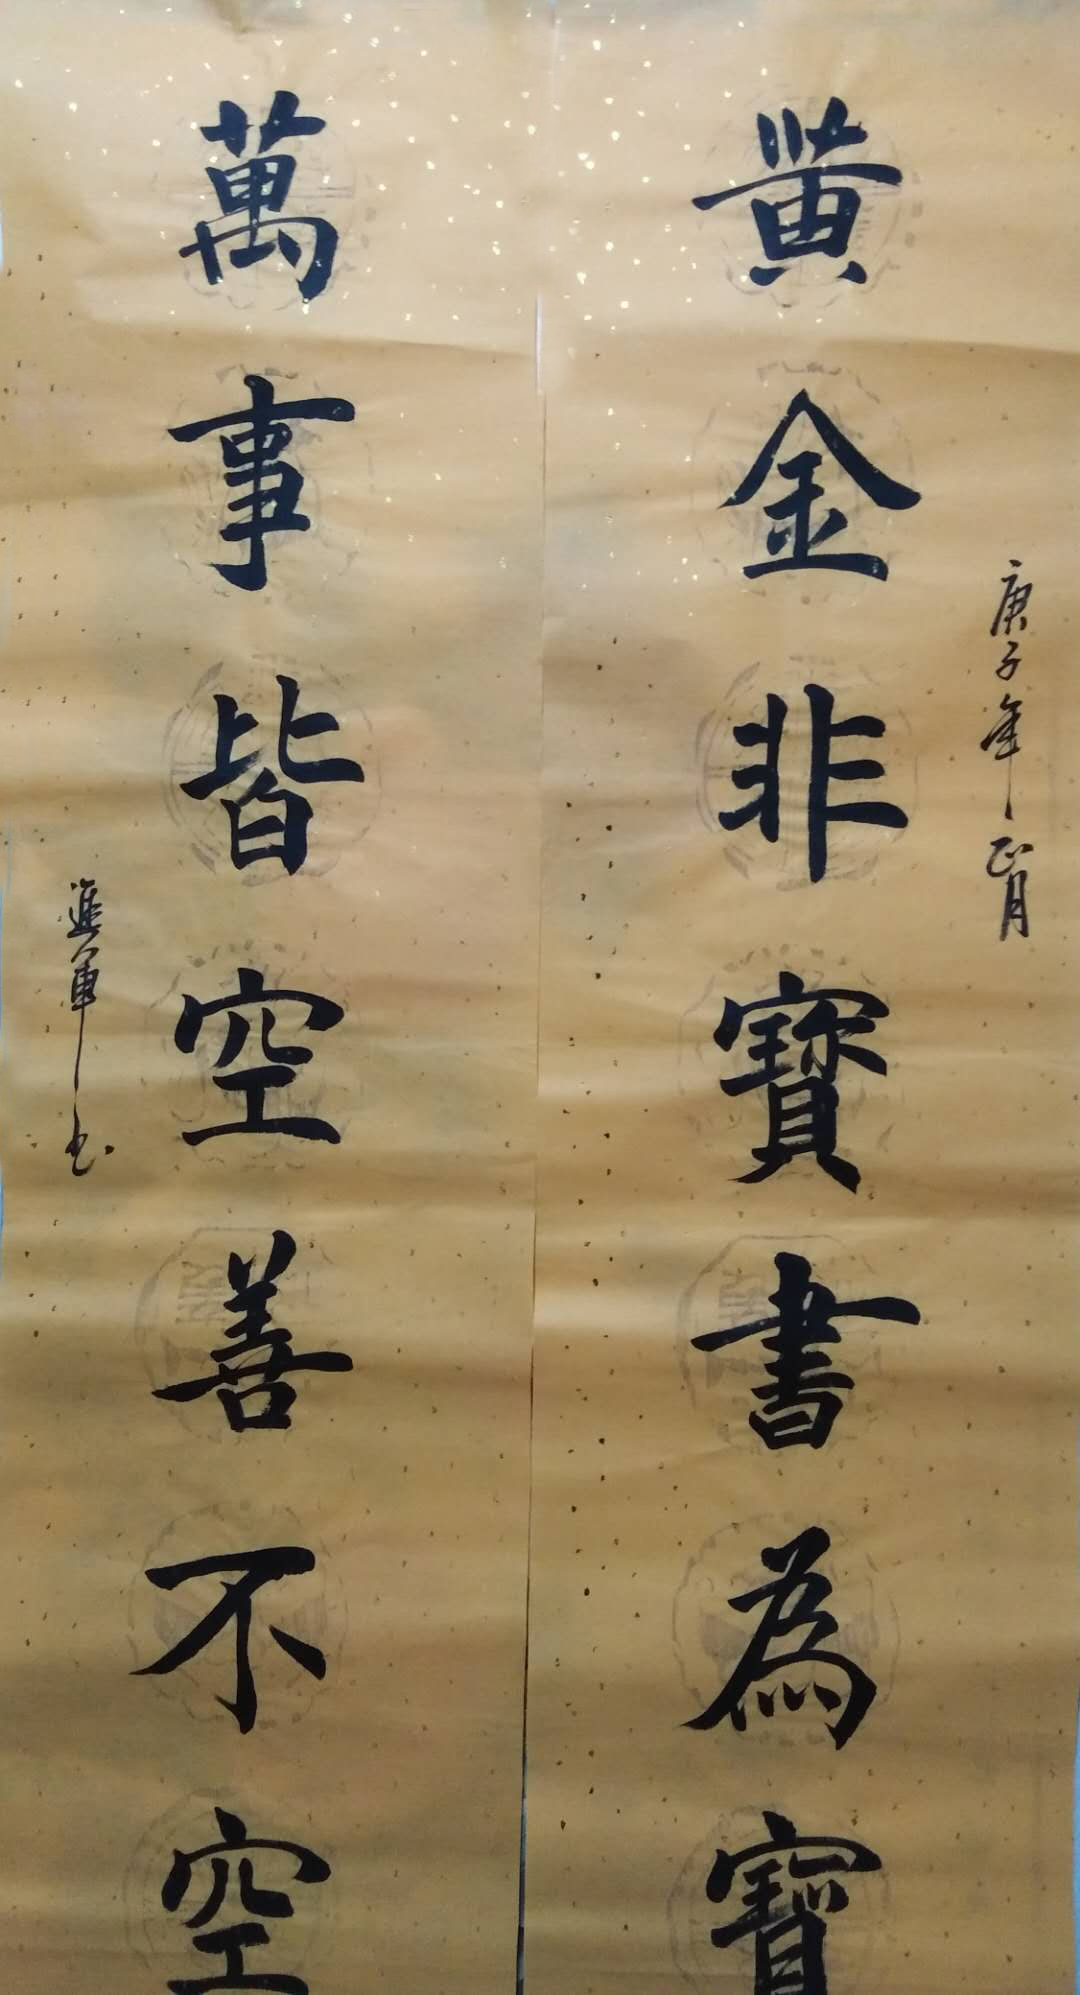 庚子年正月
黄金非寶書為寶
萬事皆空善不空
進軍书